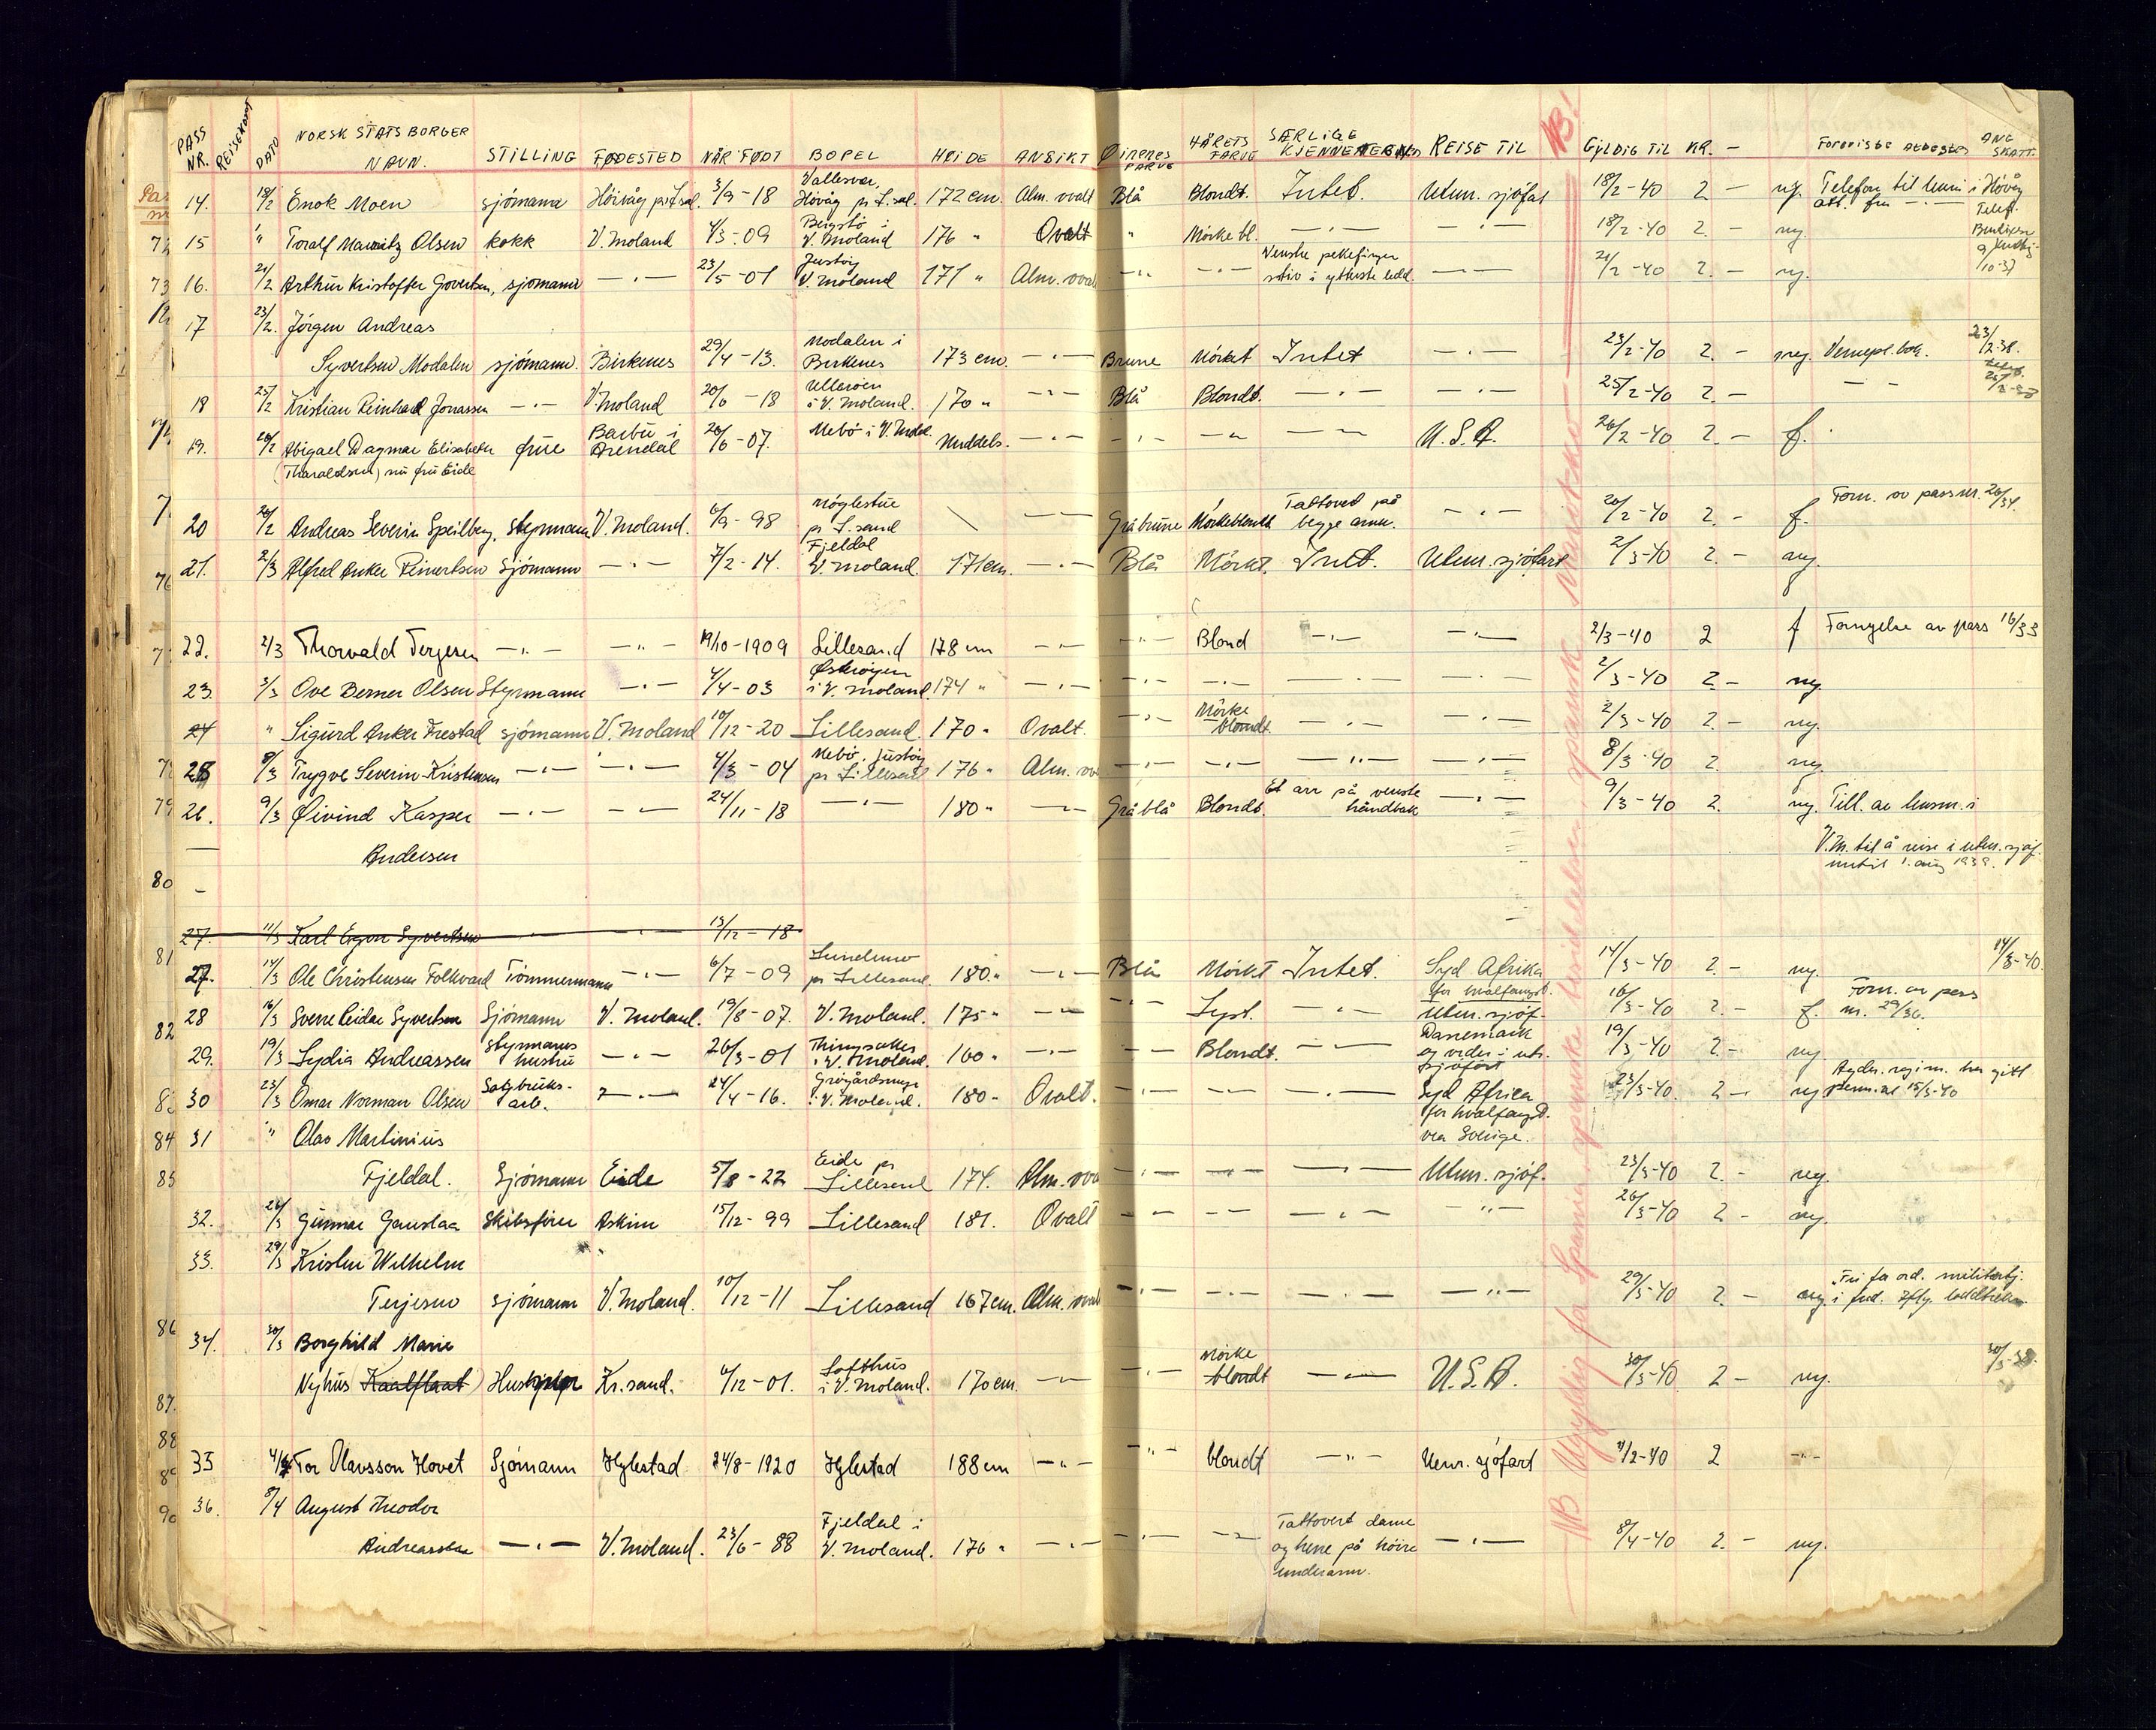 PASS NR. REISEKORT DATO NORSK STATSBORGER NAVN. STILLING FØDESTED NÅR FØDT BOPEL HØIDE ANSIKT ØINENES FARVE HÅRETS FARVE SÆRLIGE KJENNETEGN REISE TIL NB! GYLDIG TIL KR. - ANG SKATT.
14. 18/2 Enok Moen sjömann 3/9-18 Vallesver, Høvåg pr L.sal. 172 cm. Alm. ovalt Blå Blondt. Intet. Uten. sjöfart 18/2-40 2 - ny. Telefon til i Høvåg
15 " Toralf Mauritz Olsen kokk V. Moland 4/3-09 i V. Moland 176 " Ovalt " Mörke bl. -"- -"- 18/2-40 2. - ny.
16. 21/2 Arthur Kristoffer Govertsen, sjömann -"- 23/5-01 Justöy V. Moland 171 " Alm. oval -"- -"- Venstre pekefinger stiv i ytterste ledd. -"- 21/2-40 2. - ny.
17 23/2. Jörgen Andreas
Syvertsen Modalen sjömann. Birkenes 29/4-13. Modalen i Birkenes 173 cm. -"- Brune Mörket Intet -"- 23/2-40 2. - Vernepl. bok. 23/2-38.
18 25/2 Kristian Reinhard Jonassen -"- V. Moland 20/6-18 Ulleröen i V. Moland. 170 " -"- Blå Blondt. -"- -"- 25/2-40 2. -
19. 26/2 Abigael Dagmar Elisabeth frue Barbu i Arendal 26/6-07. Mebö i V. Mol. Middels. -"- -"- -"- -"- U.S.A. 26/2-40 2. - f.
(Tharaldsen) nu fru Eide
20 26/2 Andreas Severin Speilberg, Styrmann V. Moland. 6/9-98 Möglestue pr L.sand -"- Gråbrune Mörkeblondt Tattovert på begge armer. -"- 26/2-40 2. - f. Forn. av pass nr. 26/34.
21. 2/3 Alfred Anker Reinertsen Sjömann -"- 7/2-14. Fjeldal V. Moland. 171 cm. -"- Blå Mörkt. Intet. Uten. sjöfart 2/3-40 2. - ny.
22. 2/3 Thorvald Terjesen -"- -"- 19/10-1909 Lillesand 178 cm -"- -"- Blond -"- -"- 2/3-40 2 f Fornyelse av pass 16/33
23. 2/3 Ove Berner Olsen Styrmann -"- 4/4-03 i V. Moland 174 " -"- -"- -"- -"- -"- 2/3-40 2. - ny.
24 " Sigurd Anker Frestad sjömann V. Moland 10/12-20 Lillesand. 170 " Ovalt. -"- Mörke blondt. -"- -"- 2/3-40 2. - ny.
25 8/3 Trygve Severin Kristensen -"- -"- 4/3-04 Mebö, Justöy pr Lillesand 176 " Alm. ov -"- -"- -"- -"- 8/3-40 2. ny.
26. 9/3 Øivind Kasper -"- -"- 24/11-18 -"- 180 " -"- Gråblå Blondt. Et arr på venstre håndbak -"- 9/3-40 2. ny. Till. av lensm. i
Andersen V.M. til å reise i uten. sjöf. inntil 1. aug 1939.
27. 11/3 Karl Egon Syvertsen -"- 13/12-18
27. 14/3 Ole Christensen Folkvard Tömmermann -"- 6/7-09 pr Lillesand. 180 " -"- Blå Mörkt Intet. Syd Afrika for hvalfangst. 14/3-40 2. - ny. 14/3-40.
28 16/3 Sverre Reidar Syvertsen Sjömann V. Moland. 19/8-07. V. Moland. 175 " -"- -"- Lyst. -"- Uten. sjöf. 16/3-40 2. - f. Forn. av pass nr. 29/36.
29. 19/3 Lydia Andreassen Styrmanns hustru -"- 26/3-01 i V. Moland. 160 " -"- -"- Blondt. -"- Danemark og videre i utr. sjöfart 19/3-40 2. - ny.
30 23/3 Omar Norman Olsen Sagbruks- arb. -"- 24/4-16. i V. Moland. 180 " Ovalt. -"- -"- -"- Syd Africa for hvalfangst. via Sverige. 23/3-40. 2 - ny Agder. regim. har gitt perm. til 15/5-40
31 " Olav Martinius
Fjeldal. Sjömann Eide 5/8-22 Eide pr Lillesand 174. Alm. ova -"- -"- -"- Uten. sjöf. 23/3-40 2. - ny.
32. 26/3 Gunnar Gauslaa Skibsförer Askim 15/12-99 Lillesand 181. Ovalt -"- -"- -"- -"- 26/3-40 2 - ny.
33. 29/3 Kristen Wilhelm
Terjesen sjömann V. Moland. 10/12-11 Lillesand 167 cm. Alm. oval -"- -"- -"- -"- 29/3-40 2. - ny.
34. 30/3 Borghild Marie
Nyhus (Kaalflaat) Kr.sand. 6/12-01. Lofthus i V. Moland. 170 cm. -"- -"- Mörke blondt -"- U.S.A. 30/3-40 2 - ny.
35 4/4 Tor Olavsson Hovet Sjömann Hylestad 24/8-1920 Hylestad 188 cm -"- -"- blondt -"- Utenr. sjöfart 4/2-40 2 -"-
36. 8/4 August Theodor
Andreassen -"- V. Moland. 23/6-88 Fjeldal i V. Moland. 176 " -"- -"- -"- Tattovert dame og hjerte på höire underarm. -"- 8/4-40 2. - ny.
NB Ugyldig for Spania, spanske besiddelser, spansk Marokko